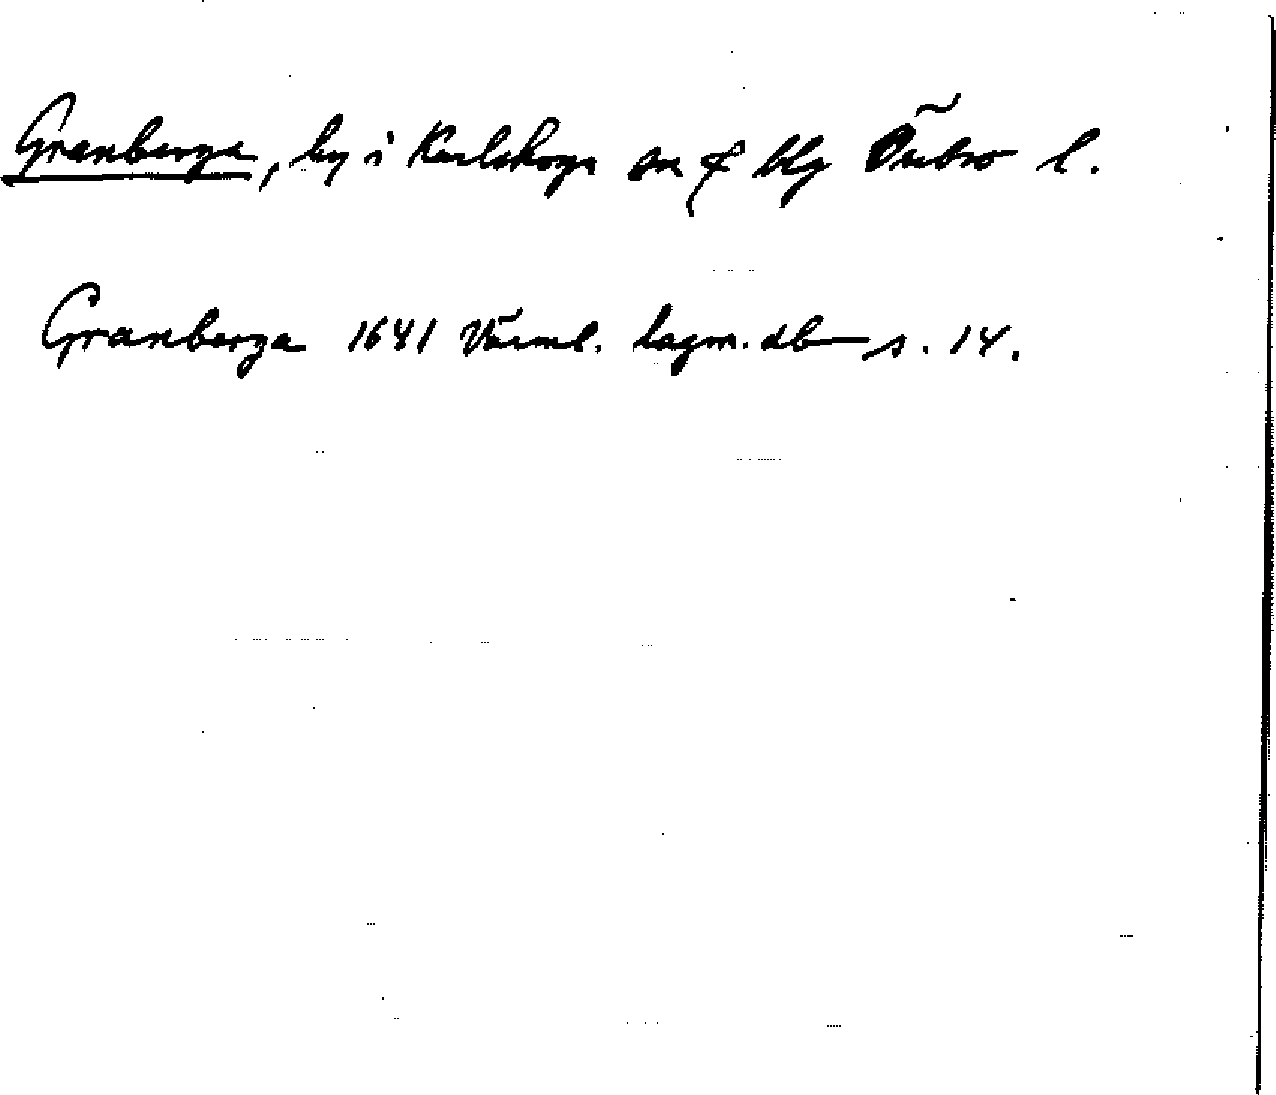 Granberga, by i Karlskoga sn & blg Örebro l.
Granberga 1641 Värml. lagm. db s. 14.